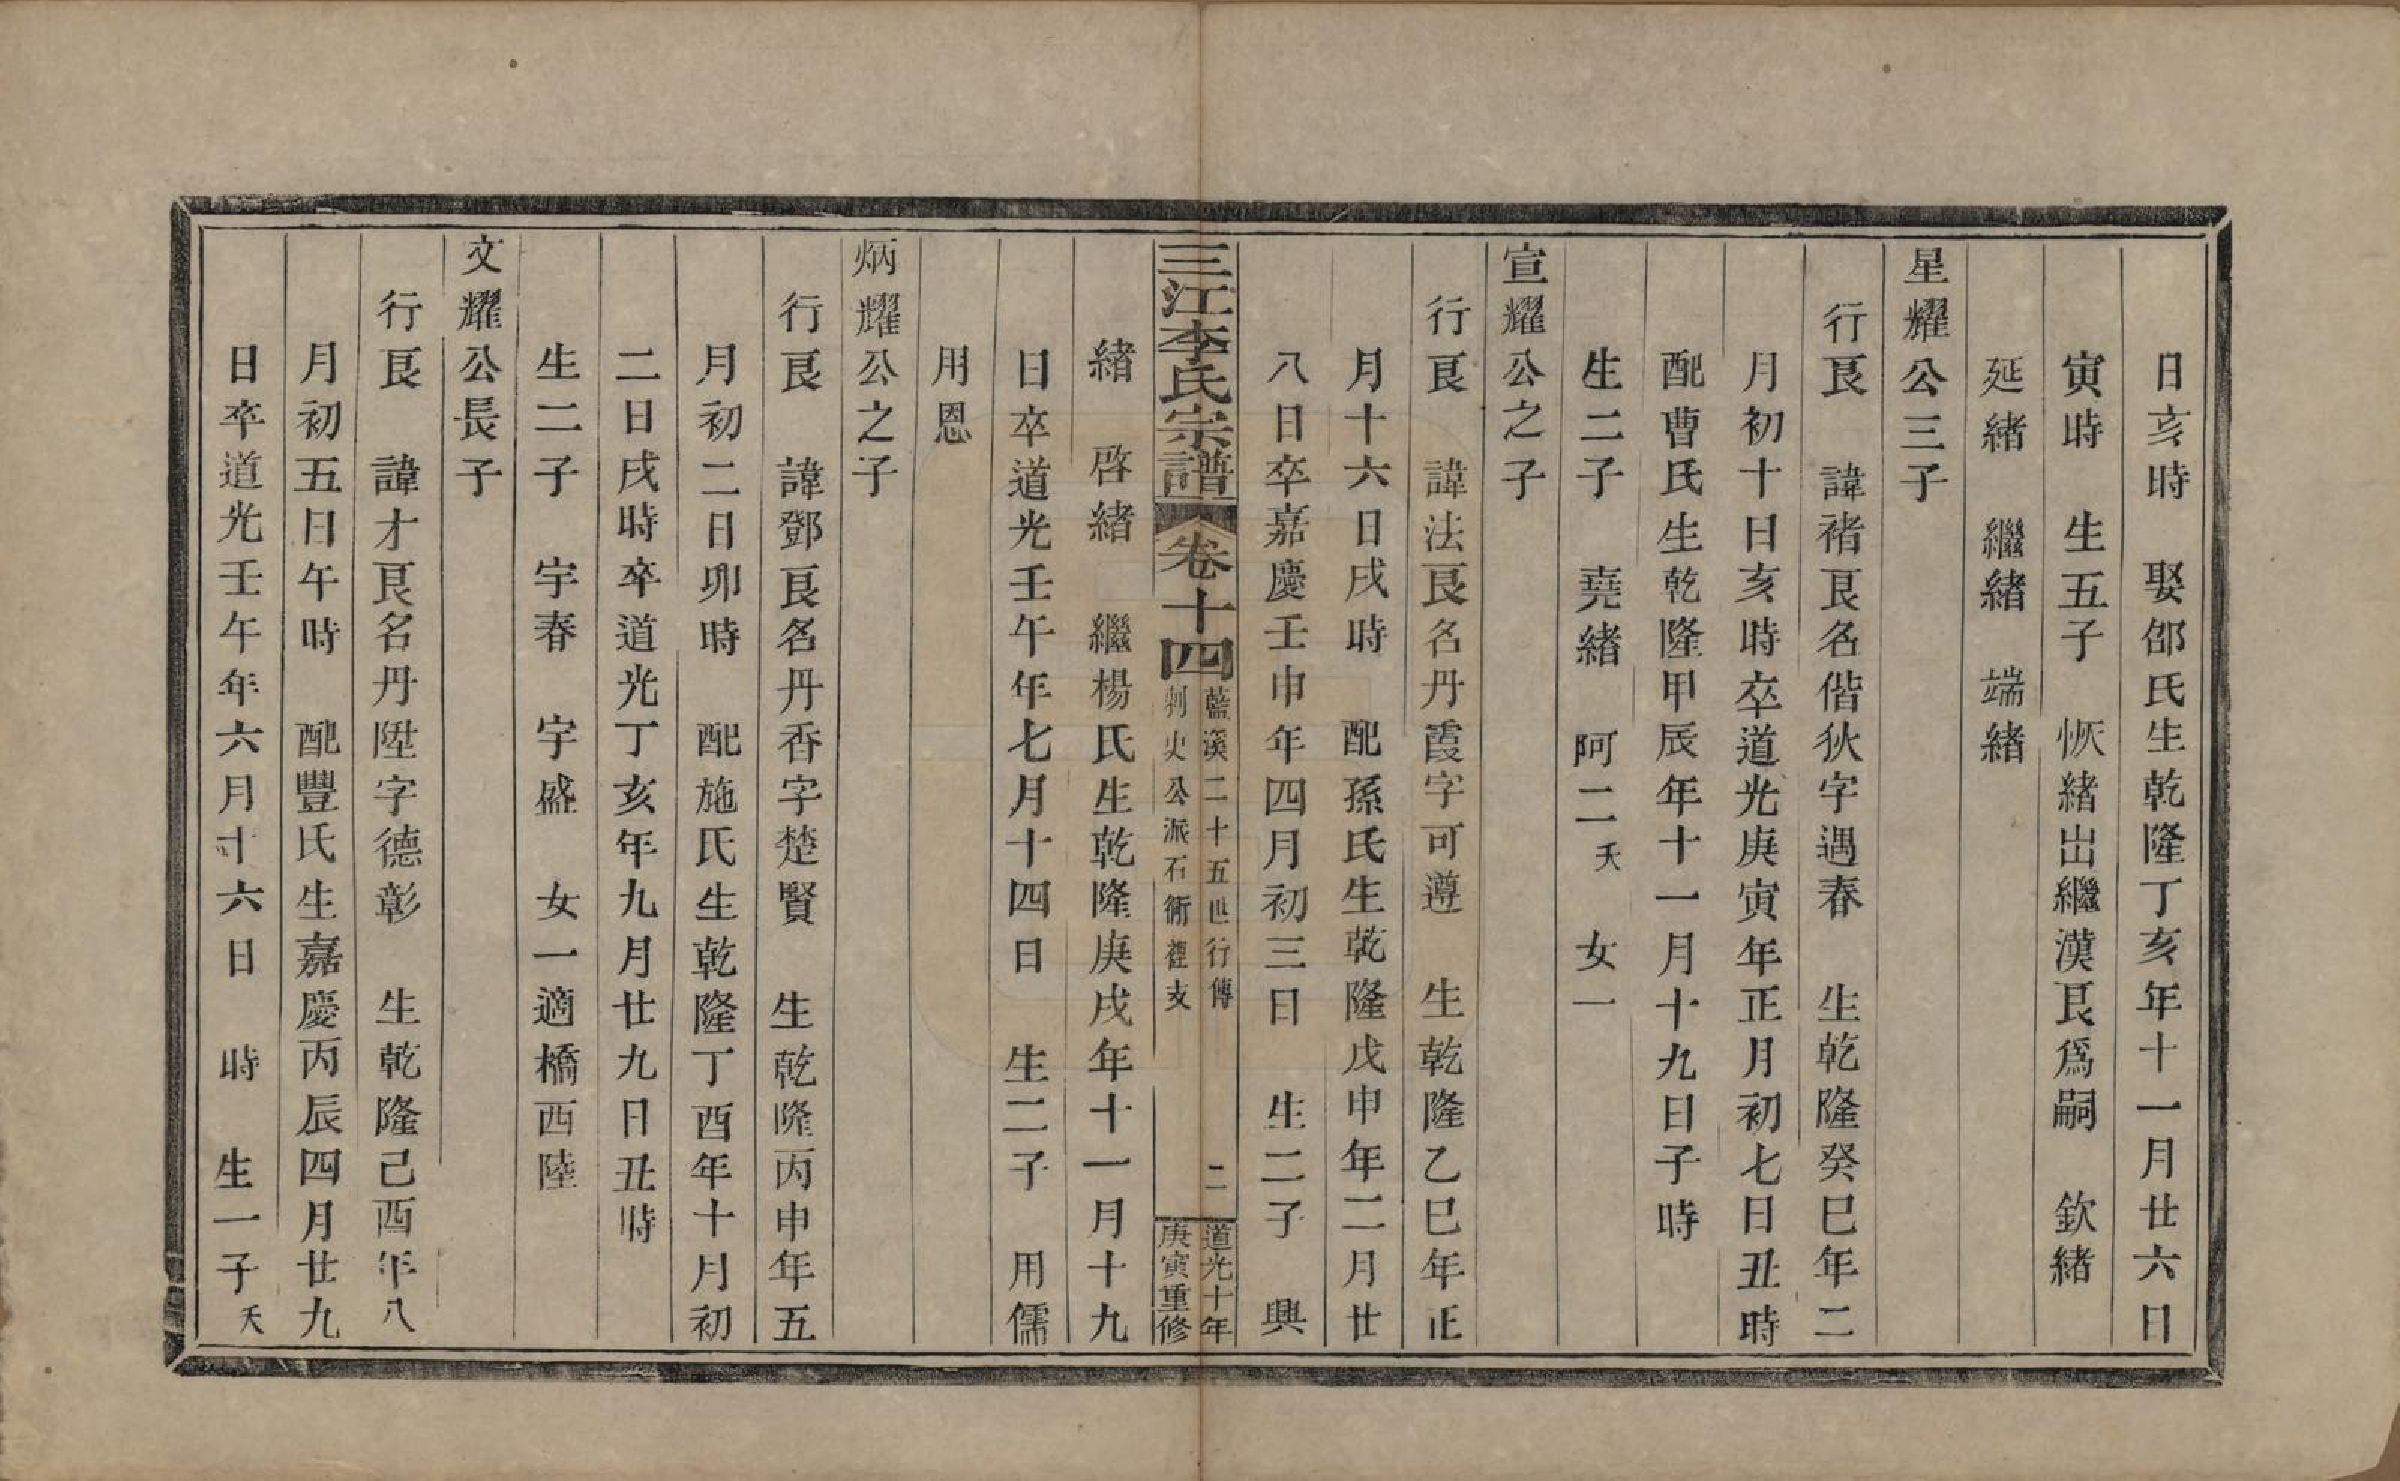 日亥時　娶邵氏生乾隆丁亥年十一月廿六日
寅時　生五子　恢緒出繼漢艮爲嗣　欽緒
延緒　繼緒　端緒
星耀公三子
行艮　諱褚艮名偕狄字遇春　生乾隆癸巳年二
月初十日亥時卒道光庚寅年正月初七日丑時
配曹氏生乾隆甲辰年十一月十九日子時
生二子　堯緒　阿二夭　女一
宣耀公之子
行艮　諱法艮名丹霞字可遵　生乾隆乙巳年正
月十六日戌時　配孫氏生乾隆戊申年二月廿
八日卒嘉慶壬申年四月初三日　生二子　興
三江李氏宗譜　卷十四　藍溪二十五世行傳
判史公派石術裡支　二　道光十年
庚寅重修
緒　啓緒　繼楊氏生乾隆庚戌年十一月十九
日卒道光壬午年七月十四日　生二子　用儒
用恩
炳耀公之子
行艮　諱鄧艮名丹香字楚賢　生乾隆丙申年五
月初二日卯時　配施氏生乾隆丁酉年十月初
二日戌時卒道光丁亥年九月廿九日丑時
生二子　宇春　宇盛　女一適橋西陸
文耀公長子
行艮　諱才艮名丹陞字德彰　生乾隆己酉年八
月初五日午時　配豐氏生嘉慶丙辰四月廿九
日卒道光壬午年六月十六日　時　生一子夭